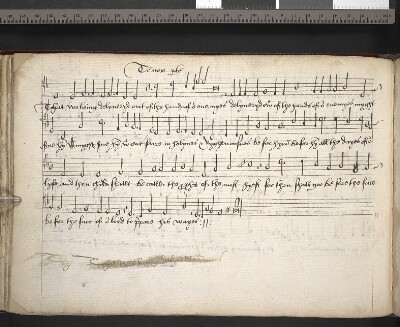 Tenor pts
That we being delyvered out of the handes of o enemyes delyvered out of the handes of o enemyes myght
serve hym with out feare in holynes & Ryghteousnes be for hym before hym all the dayes of o
lyfe and thou chyld shalt be called the pphet of the most hyest for thou shalt goe be fore the face
be for the face of the lord to ppare his wayes